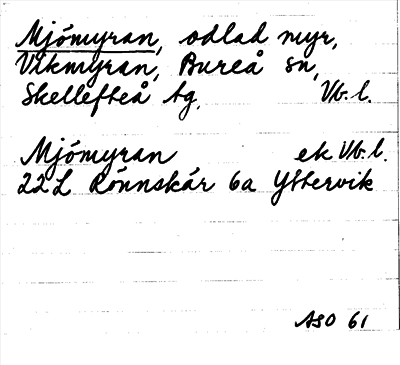 Mjömyran, odlad myr,
Vikmyran, Bureå sn,
Skellefteå tg. Vb. l.
Mjömyran ek Vb. l.
22L Rönnskär 6a Yttervik
ASO 61